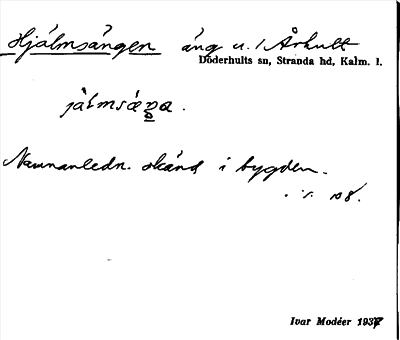 Hjälmsängen äng u. / Århult
Döderhults sn, Stranda hd, Kalm. l.
jälmsäŋa.
Namnanledn. okänd i bygden.
108.
Ivar Modéer 1937